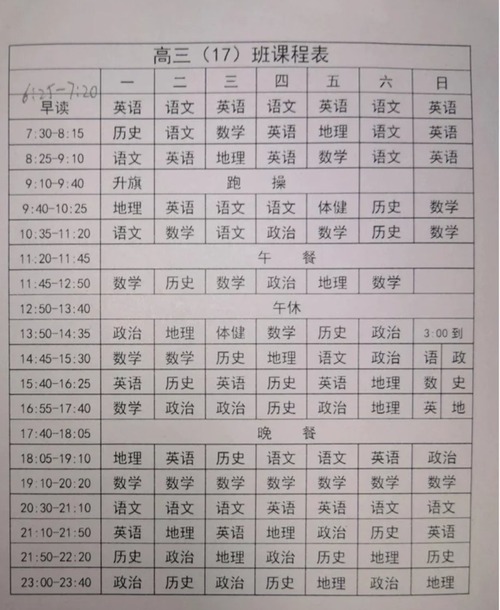 高三（17）班课程表
一 二 三 四 五 六 日
6:25-7:20
早读 英语 语文 英语 语文 英语 语文 英语
7:30-8:15 历史 语文 数学 英语 地理 语文 英语
8:25-9:10 语文 英语 地理 英语 数学 语文 英语
9:10-9:40 升旗 跑 操
9:40-10:25 地理 英语 语文 语文 体健 历史 数学
10:35-11:20 语文 数学 语文 政治 数学 历史 数学
11:20-11:45 午 餐
11:45-12:50 数学 历史 数学 政治 地理 数学
12:50-13:40 午休
13:50-14:35 政治 地理 体健 数学 历史 政治 3:00到
14:45-15:30 数学 数学 历史 地理 语文 政治 语 政
15:40-16:25 英语 历史 英语 历史 英语 地理 数 史
16:55-17:40 数学 政治 政治 历史 政治 地理 英 地
17:40-18:05 晚 餐
18:05-19:10 地理 英语 历史 语文 语文 英语 政治
19:10-20:20 数学 数学 数学 数学 数学 数学 数学
20:30-21:10 语文 语文 语文 英语 英语 语文 语文
21:10-21:50 英语 地理 英语 地理 政治 历史 英语
21:50-22:20 历史 政治 地理 政治 历史 地理 历史
23:00-23:40 政治 历史 政治 历史 地理 政治 地理